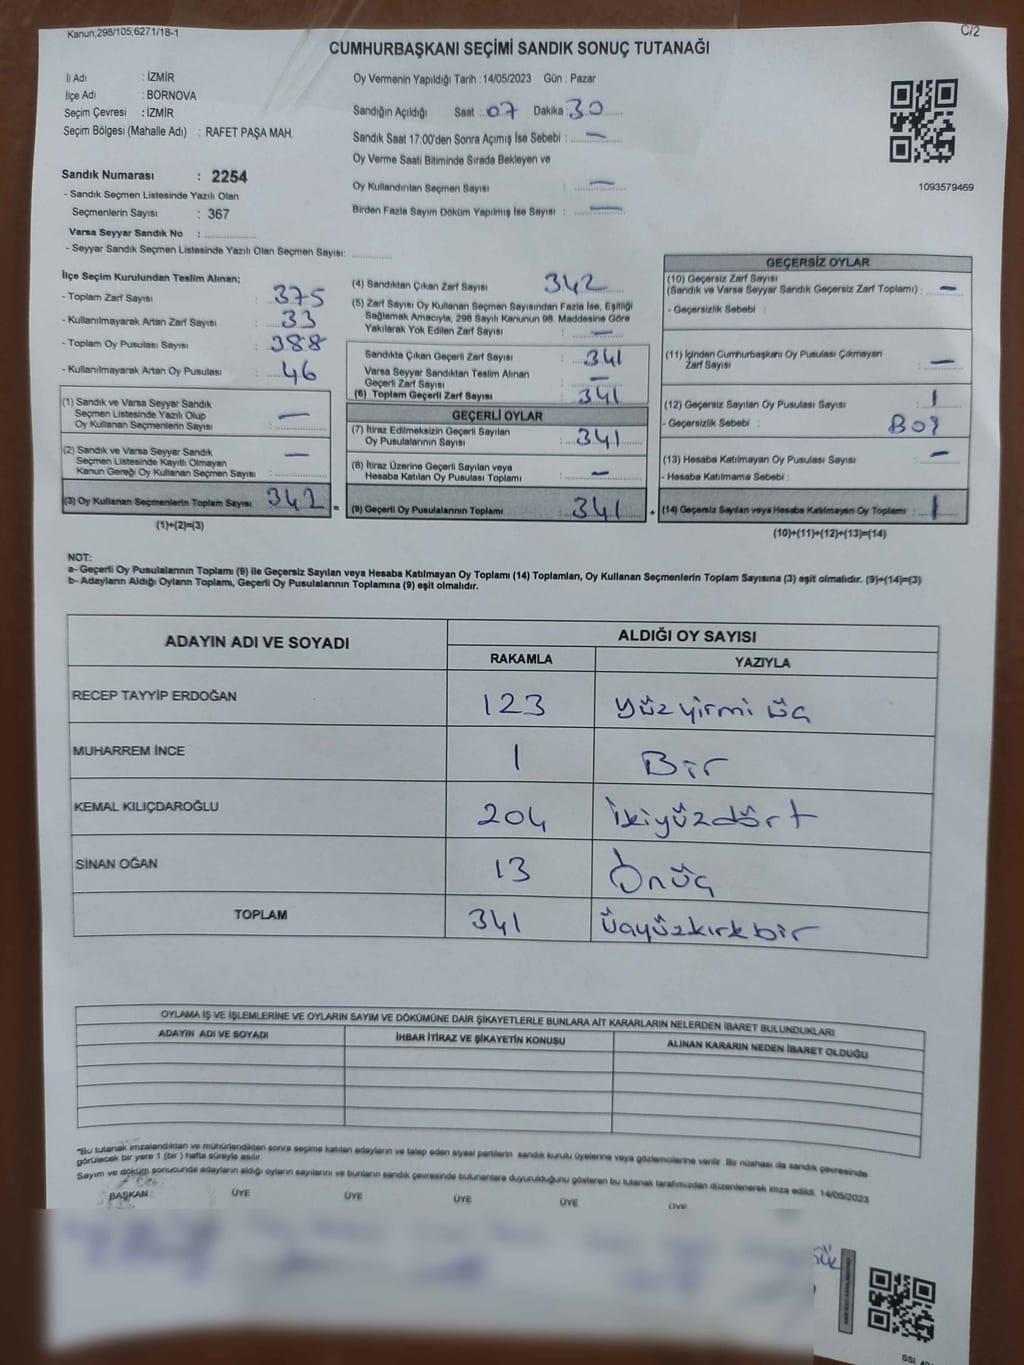 Kanun;298/105;6271/18-1
C/2
CUMHURBAŞKANI SEÇİMİ SANDIK SONUÇ TUTANAĞI
İl Adı : İZMİR
İlçe Adı : BORNOVA
Seçim Çevresi : İZMİR
Seçim Bölgesi (Mahalle Adı) : RAFET PAŞA MAH.
Oy Vermenin Yapıldığı Tarih : 14/05/2023 Gün : Pazar
Sandığın Açıldığı Saat : 07 Dakika : 30
Sandık Saat 17:00'den Sonra Açımış İse Sebebi : —
Oy Verme Saati Bitiminde Sırada Bekleyen ve
Oy Kullandırılan Seçmen Sayısı : —
Birden Fazla Sayım Döküm Yapılmış İse Sayısı : —
1093579469
Sandık Numarası : 2254
- Sandık Seçmen Listesinde Yazılı Olan
Seçmenlerin Sayısı : 367
Varsa Seyyar Sandık No :
- Seyyar Sandık Seçmen Listesinde Yazılı Olan Seçmen Sayısı:
İlçe Seçim Kurulundan Teslim Alınan;
- Toplam Zarf Sayısı : 375
- Kullanılmayarak Artan Zarf Sayısı : 33
- Toplam Oy Pusulası Sayısı : 388
- Kullanılmayarak Artan Oy Pusulası : 46
(1) Sandık ve Varsa Seyyar Sandık
Seçmen Listesinde Yazılı Olup
Oy Kullanan Seçmenlerin Sayısı : —
(2) Sandık ve Varsa Seyyar Sandık
Seçmen Listesinde Kayıtlı Olmayan
Kanun Gereği Oy Kullanan Seçmen Sayısı : —
(3) Oy Kullanan Seçmenlerin Toplam Sayısı 342 =
(1)+(2)=(3)
(4) Sandıktan Çıkan Zarf Sayısı : 342
(5) Zarf Sayısı Oy Kullanan Seçmen Sayısından Fazla İse, Eşitliği
Sağlamak Amacıyla, 298 Sayılı Kanunun 98. Maddesine Göre
Yakılarak Yok Edilen Zarf Sayısı : —
Sandıkta Çıkan Geçerli Zarf Sayısı : 341
Varsa Seyyar Sandıktan Teslim Alınan
Geçerli Zarf Sayısı : —
(6) Toplam Geçerli Zarf Sayısı : 341
GEÇERLİ OYLAR
(7) İtiraz Edilmeksizin Geçerli Sayılan
Oy Pusulalarının Sayısı : 341
(8) İtiraz Üzerine Geçerli Sayılan veya
Hesaba Katılan Oy Pusulası Toplamı : —
(9) Geçerli Oy Pusulalarının Toplamı : 341 +
GEÇERSİZ OYLAR
(10) Geçersiz Zarf Sayısı
(Sandık ve Varsa Seyyar Sandık Geçersiz Zarf Toplamı) : —
- Geçersizlik Sebebi :
(11) İçinden Cumhurbaşkanı Oy Pusulası Çıkmayan
Zarf Sayısı : —
(12) Geçersiz Sayılan Oy Pusulası Sayısı : 1
- Geçersizlik Sebebi : Boş
(13) Hesaba Katılmayan Oy Pusulası Sayısı : —
- Hesaba Katılmama Sebebi :
(14) Geçersiz Sayılan veya Hesaba Katılmayan Oy Toplamı : 1
(10)+(11)+(12)+(13)=(14)
NOT:
a- Geçerli Oy Pusulalarının Toplamı (9) ile Geçersiz Sayılan veya Hesaba Katılmayan Oy Toplamı (14) Toplamları, Oy Kullanan Seçmenlerin Toplam Sayısına (3) eşit olmalıdır. (9)+(14)=(3)
b- Adayların Aldığı Oyların Toplamı, Geçerli Oy Pusulalarının Toplamına (9) eşit olmalıdır.
ADAYIN ADI VE SOYADI ALDIĞI OY SAYISI
RAKAMLA YAZIYLA
RECEP TAYYİP ERDOĞAN 123 yüzyirmi üç
MUHARREM İNCE 1 Bir
KEMAL KILIÇDAROĞLU 204 ikiyüzdört
SİNAN OĞAN 13 Onüç
TOPLAM 341 üçyüzkırkbir
OYLAMA İŞ VE İŞLEMLERİNE VE OYLARIN SAYIM VE DÖKÜMÜNE DAİR ŞİKAYETLERLE BUNLARA AİT KARARLARIN NELERDEN İBARET BULUNDUKLARI
ADAYIN ADI VE SOYADI İHBAR İTİRAZ VE ŞİKAYETİN KONUSU ALINAN KARARIN NEDEN İBARET OLDUĞU
"Bu tutanak imzalandıktan ve mühürlendikten sonra seçime katılan adayların ve talep eden siyasi partilerin sandık kurulu üyelerine veya gözlemcilerine verilir. Bir nüshası da sandık çevresinde
görülecek bir yere 1 (bir) hafta süreyle asılır.
Sayım ve döküm sonucunda adayların aldığı oyların sayılarını ve bunların sandık çevresinde bulunanlara duyurulduğunu gösteren bu tutanak tarafımızdan düzenlenerek imza edildi. 14/05/2023
BAŞKAN ÜYE ÜYE ÜYE ÜYE ÜYE